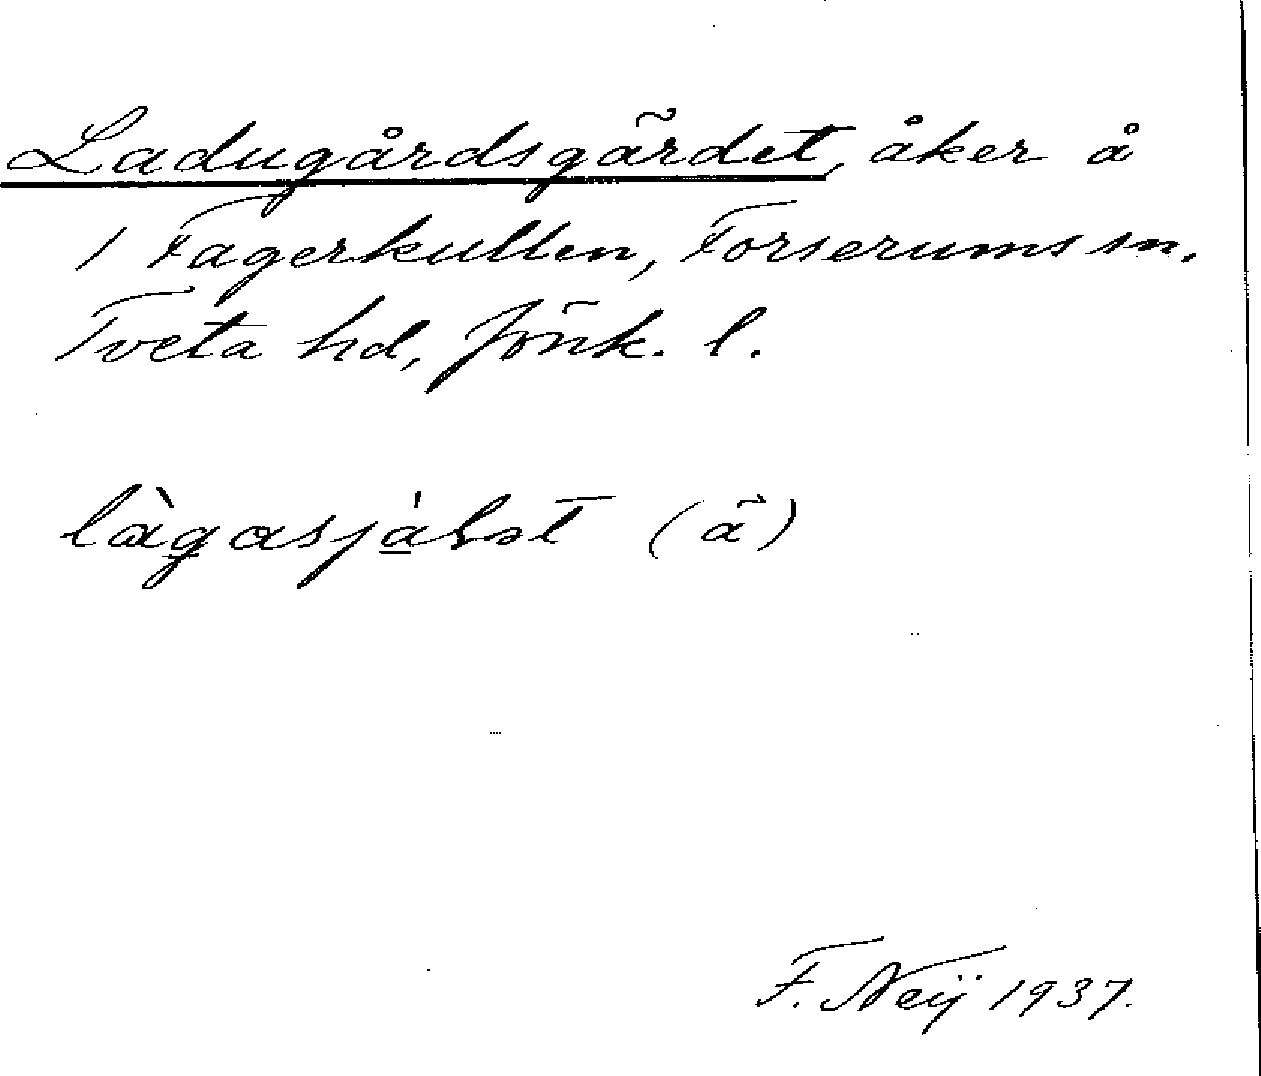 Ladugårdsgärdet, åker å
1 Fagerkullen, Forserums sn.
Tveta hd, Jönk. l.
(ä)
F. Neij 1937.